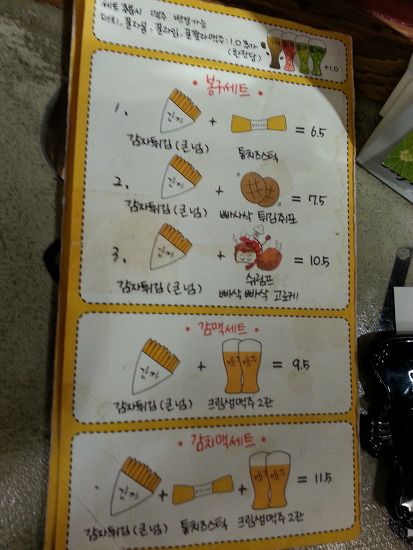 세트 주문시 맥주 변경가능
더치, 폴라폴, 폴라임, 폴콜라맥주 : 1.0 추가
(한잔당)
+1.0
• 봉구세트 •
1. 감자 + = 6.5
감자튀김 (큰 놈) 통치즈스틱
2. 감자 + = 7.5
감자튀김 (큰 놈) 빠사삭 튀김쥐포
3. 감자 + = 10.5
감자튀김 (큰 놈) 쉬림프
빠삭빠삭 고로케
• 감맥세트 •
감자 + 맥주 맥주 = 9.5
감자튀김 (큰 놈) 크림생맥주 2잔
• 감치맥세트 •
감자 + + 맥주 맥주 = 11.5
감자튀김 (큰 놈) 통치즈스틱 크림생맥주 2잔